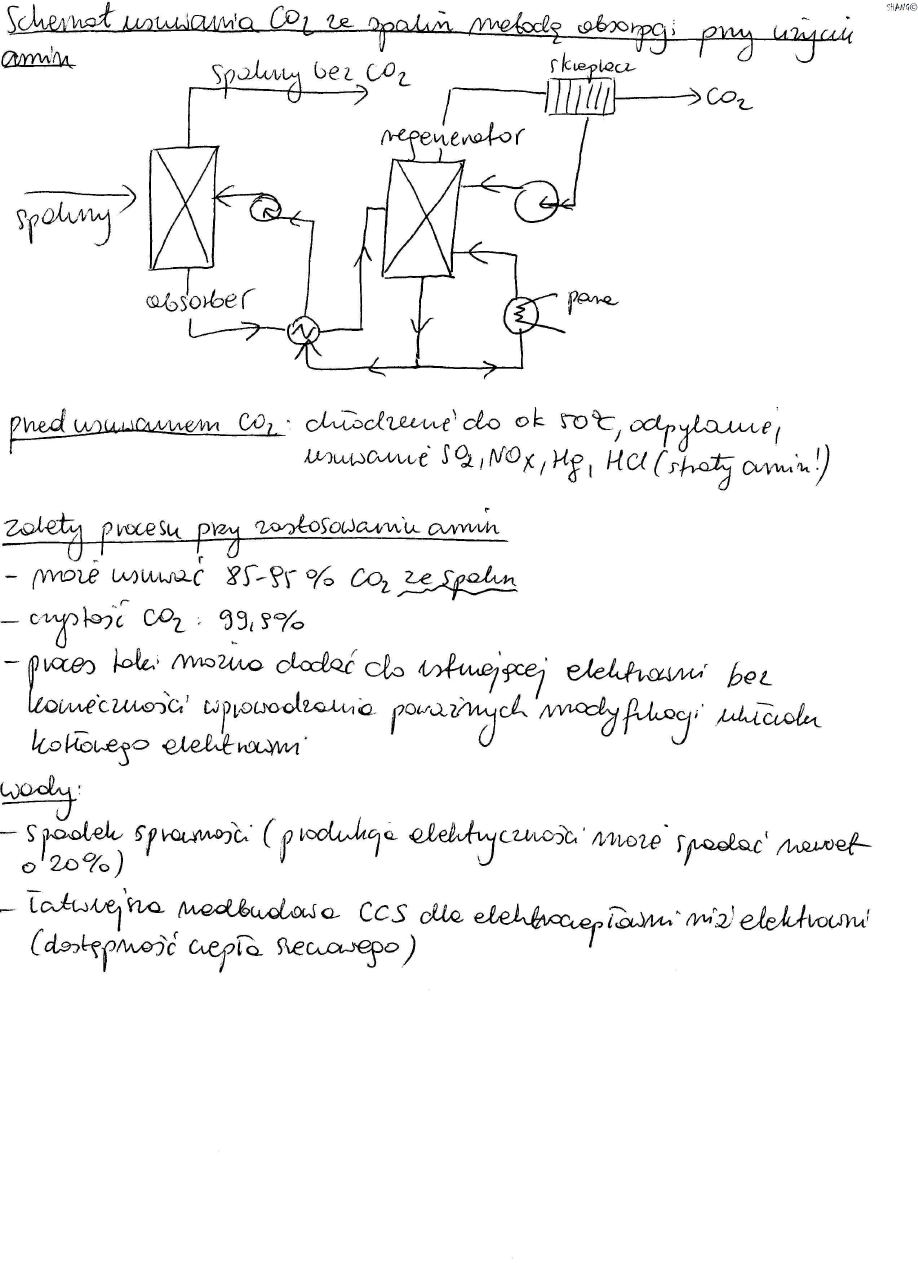 SHANG©
Schemat usuwania CO2 ze spalin metodą absorpcji przy użyciu
amin
spaliny bez CO2
skraplacz
CO2
regenerator
spaliny
absorber
para
przed usuwaniem CO2: chłodzenie do ok 50°C, odpylanie,
usuwanie SO2, NOx, Hg, HCl (straty amin!)
zalety procesu przy zastosowaniu amin
- może usuwać 85-95% CO2 ze spalin
- czystość CO2: 99,9%
- proces taki można dodać do istniejącej elektrowni bez
konieczności wprowadzania poważnych modyfikacji układu
kotłowego elektrowni
wady:
- spadek sprawności (produkcja elektryczności może spadać nawet
o 20%)
- łatwiejsza nadbudowa CCS dla elektrociepłowni niż elektrowni
(dostępność ciepła sieciowego)